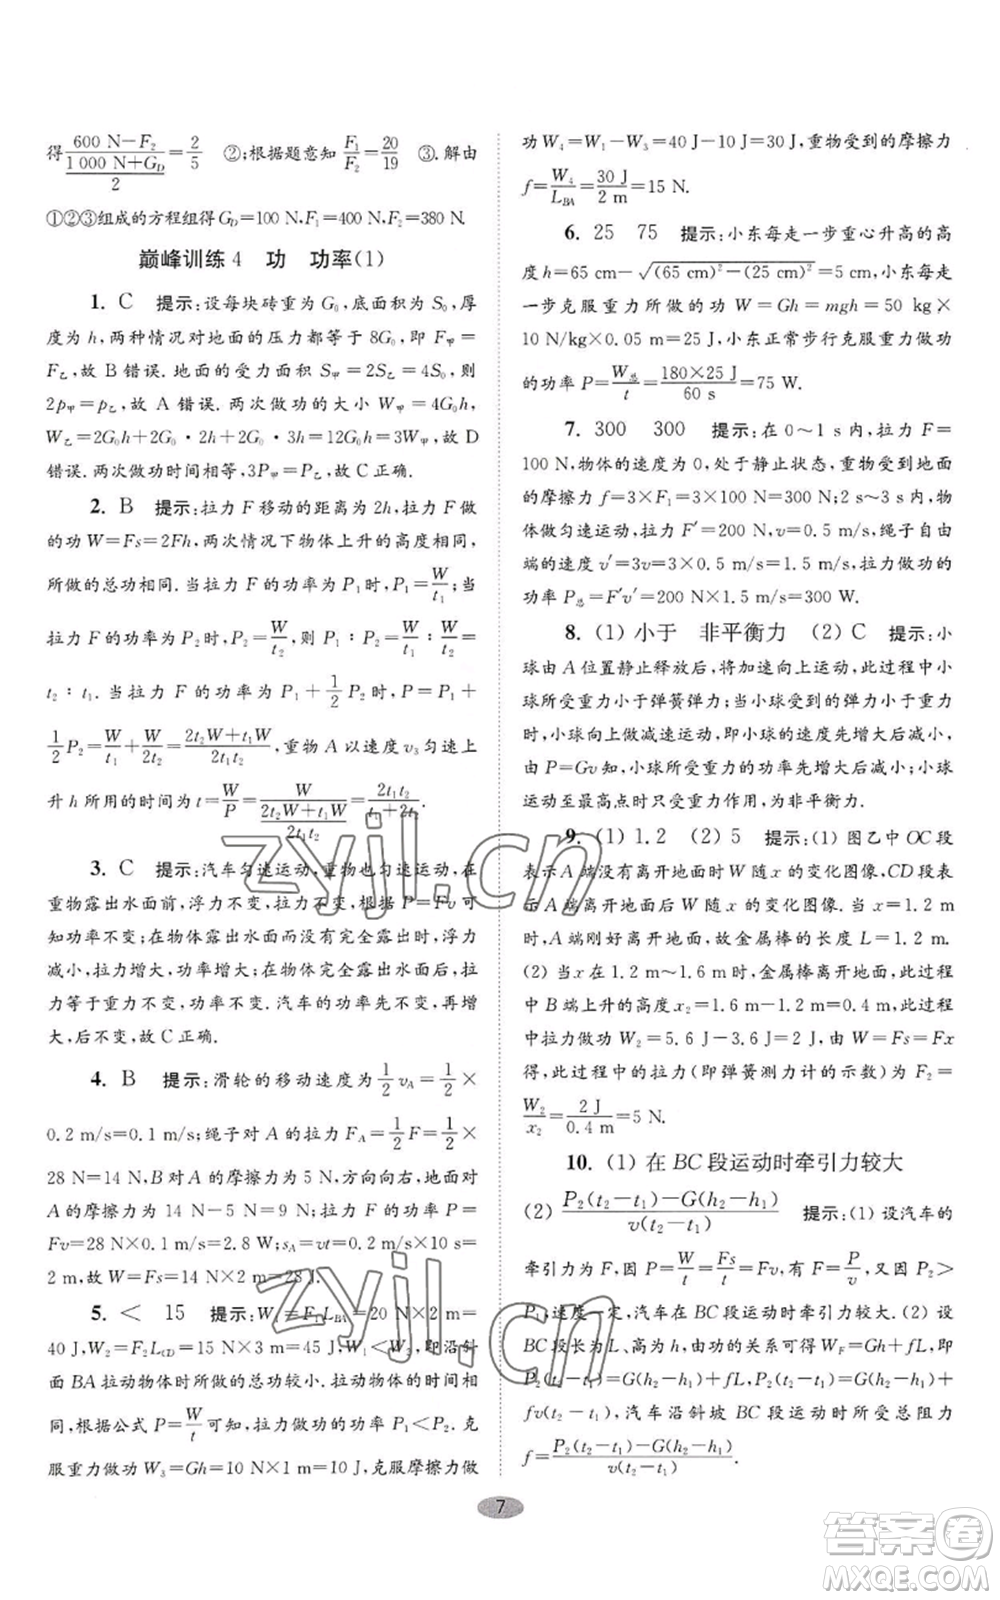 得(600 N−F₂)/((1 000 N+G_D)/2)=2/5　②;根据题意知 F₁/F₂=20/19　③. 解由
①②③组成的方程组得G_D=100 N,F₁=400 N,F₂=380 N.
巅峰训练4　功　功率(1)
1. C　提示:设每块砖重为 G₀,底面积为 S₀,厚
度为 h,两种情况对地面的压力都等于 8G₀,即 F甲=
F乙,故 B 错误. 地面的受力面积 S甲=2S乙=4S₀,则
2p甲=p乙,故 A 错误. 两次做功的大小 W甲=4G₀h,
W乙=2G₀h+2G₀·2h+2G₀·3h=12G₀h=3W甲,故 D
错误. 两次做功时间相等,3P甲=P乙,故 C 正确.
2. B　提示:拉力 F 移动的距离为 2h,拉力 F 做
的功 W=Fs=2Fh,两次情况下物体上升的高度相同,
所做的总功相同. 当拉力 F 的功率为 P₁时,P₁=W/t₁;当
拉力 F 的功率为 P₂时,P₂=W/t₂,则 P₁∶P₂=W/t₁∶W/t₂=
t₂∶t₁. 当拉力 F 的功率为 P₁+1/2P₂时,P=P₁+
1/2P₂=W/t₁+W/2t₂=(2t₂W+t₁W)/2t₁t₂,重物 A 以速度 v₃匀速上
升 h 所用的时间为 t=W/P=W/((2t₂W+t₁W)/2t₁t₂)=2t₁t₂/(t₁+2t₂).
3. C　提示:汽车匀速运动,重物也匀速运动,在
重物露出水面前,浮力不变,拉力不变,根据 P=Fv可
知功率不变;在物体露出水面而没有完全露出时,浮力
减小,拉力变大,功率增大;在物体完全露出水面后,拉
力等于重力不变,功率不变. 汽车的功率先不变,再增
大,后不变,故 C 正确.
4. B　提示:滑轮的移动速度为1/2v_A=1/2×
0.2 m/s=0.1 m/s;绳子对 A 的拉力 F_A=1/2F=1/2×
28 N=14 N,B 对 A 的摩擦力方向向右,地面对
A 的摩擦力为 14 N−5 N=9 N;拉力 F 的功率 P=
Fv=28 N×0.1 m/s=2.8 W;s_A=vt=0.1 m/s×10 s=
2 m,故 W=Fs=14 N×2 m=28 J.
5. <　15　提示:W₁=F₁L_BA=20 N×2 m=
40 J,W₂=F₂L_CD=15 N×3 m=45 J,W₁<W₂,即沿斜
面 BA拉动物体时所做的总功较小. 拉动物体时时间相
同,根据公式 P=W/t可知,拉力做功的功率 P₁<P₂. 克
服重力做功 W₃=Gh=10 N×1 m=10 J,克服摩擦力做
功 W₄=W₁−W₃=40 J−10 J=30 J,重物受到的摩擦力
f=W₄/L_BA=30 J/2 m=15 N.
6. 25　75　提示:小东每走一步重心升高的高
度 h=65 cm−√((65 cm)²−(25 cm)²)=5 cm,小东每走
一步克服重力所做的功 W=Gh=mgh=50 kg×
10 N/kg×0.05 m=25 J,小东正常步行克服重力做功
的功率 P=W总/t=180×25 J/60 s=75 W.
7. 300　300　提示:在 0~1 s 内,拉力 F=
100 N,物体的速度为 0,处于静止状态,重物受到地面
的摩擦力 f=3×F₁=3×100 N=300 N;2 s~3 s 内,物
体做匀速运动,拉力 F′=200 N,v=0.5 m/s,绳子自由
端的速度 v′=3v=3×0.5 m/s=1.5 m/s,故拉力 F′
的功率 P总=F′v′=200 N×1.5 m/s=300 W.
8. (1) 小于　非平衡力　(2) C　提示:小
球由 A 位置静止释放后,将加速向上运动,此过程中小
球所受重力小于弹簧弹力;当小球受到的弹力小于重力
时,小球向上做减速运动,即小球的速度先增大后减小,
由 P=Gv知,小球所受重力的功率先增大后减小;小球
运动至最高点时只受重力作用,为非平衡力.
9. (1) 1.2　(2) 5　提示:(1) 图乙中 OC段
表示 A 端离开地面之前 W 随 x 的变化图像,CD 段表
示 A 端离开地面后 W 随 x 的变化图像. 当 x=1.2 m
时,A 端刚好离开地面,故金属棒的长度 L=1.2 m.
(2) 当 x 在 1.2 m~1.6 m 时,金属棒离开地面,此过程
中 B 端上升的高度 x₂=1.6 m−1.2 m=0.4 m,此过
程中拉力做功 W₂=5.6 J−3.6 J=2 J,由 W=Fs=Fx
得,此过程中的拉力(即弹簧测力计的示数)为 F₂=
W₂/x₂=2 J/0.4 m=5 N.
10. (1) 在 BC段运动时牵引力较大
(2) (P₂(t₂−t₁)−G(h₂−h₁))/(v(t₂−t₁))　提示:(1) 设汽车的
牵引力为 F,因为 P=W/t=Fs/t=Fv,所以 F=P/v,因 P₂>
P₁,速度一定,汽车在 BC段运动时牵引力较大. (2) 设
BC段长为 L、高为 h,由功的关系可得 W_F=Gh+fL,即
P₂(t₂−t₁)=G(h₂−h₁)+fL,P₂(t₂−t₁)=G(h₂−h₁)+
fv(t₂−t₁),汽车沿斜坡 BC段运动时所受总阻力
f=(P₂(t₂−t₁)−G(h₂−h₁))/(v(t₂−t₁)).
7
zyjl.cn
zyjl.cn
答案圈
MXQE.COM